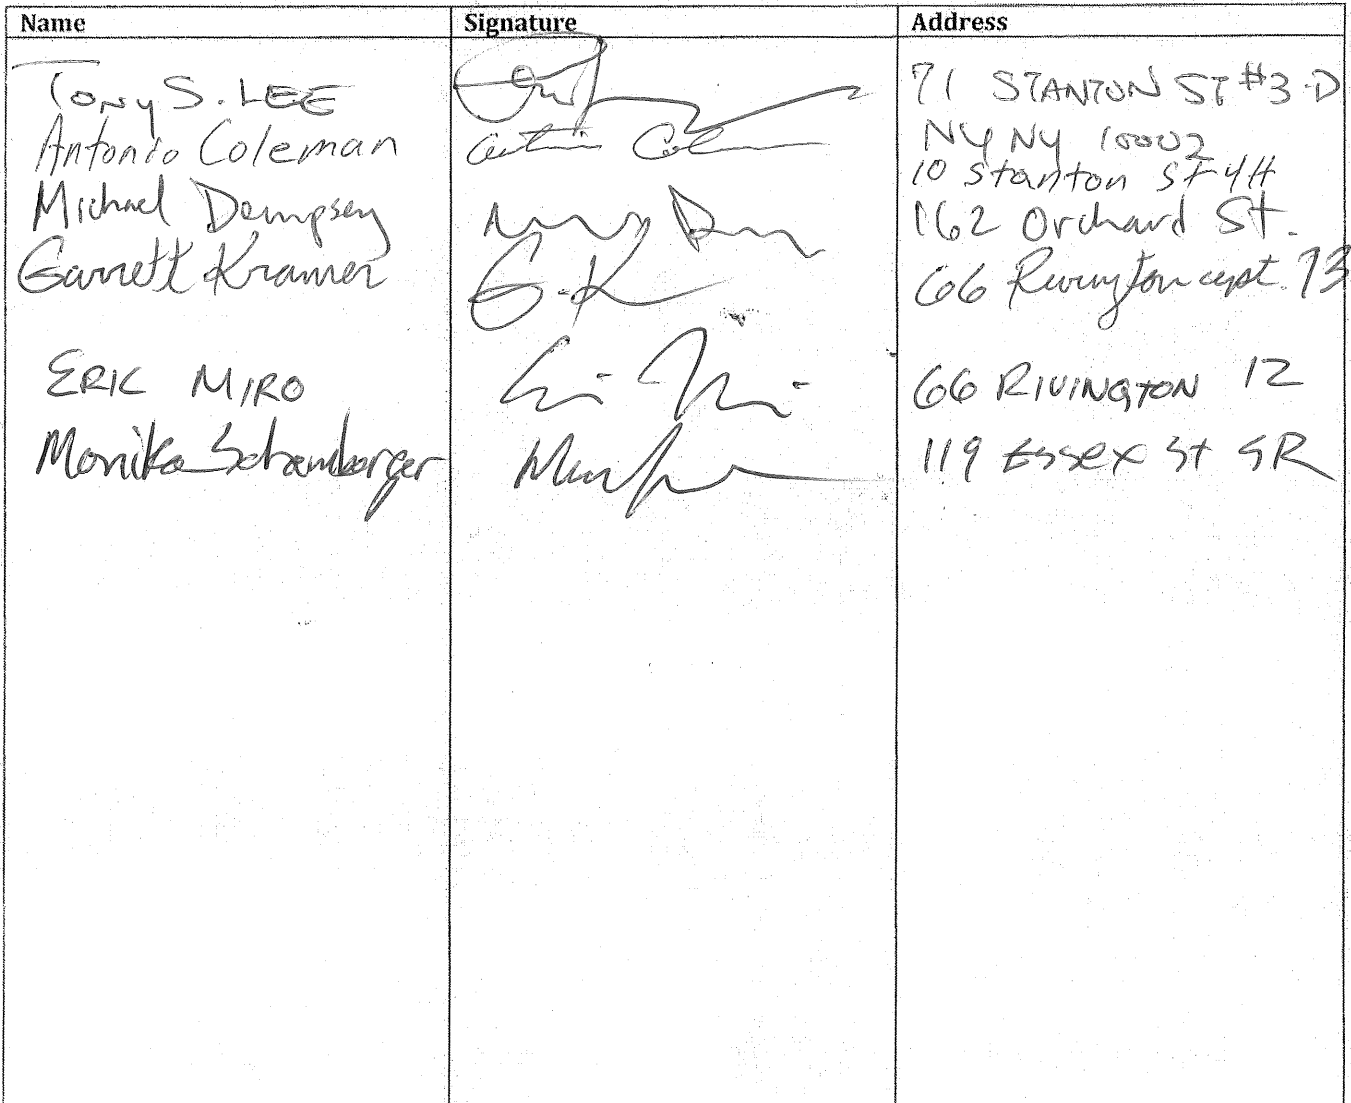 Name Signature Address
Tony S. LEE 71 STANTON ST #3-D
NY NY 10002
Antonio Coleman Antonio Coleman 10 Stanton St 4H
Michael Dempsey 162 Orchard St.
Garrett Kramer G-K 66 Rivington apt. 13
ERIC MIRO 66 RIVINGTON 12
Monika Schamberger 119 Essex St 5R